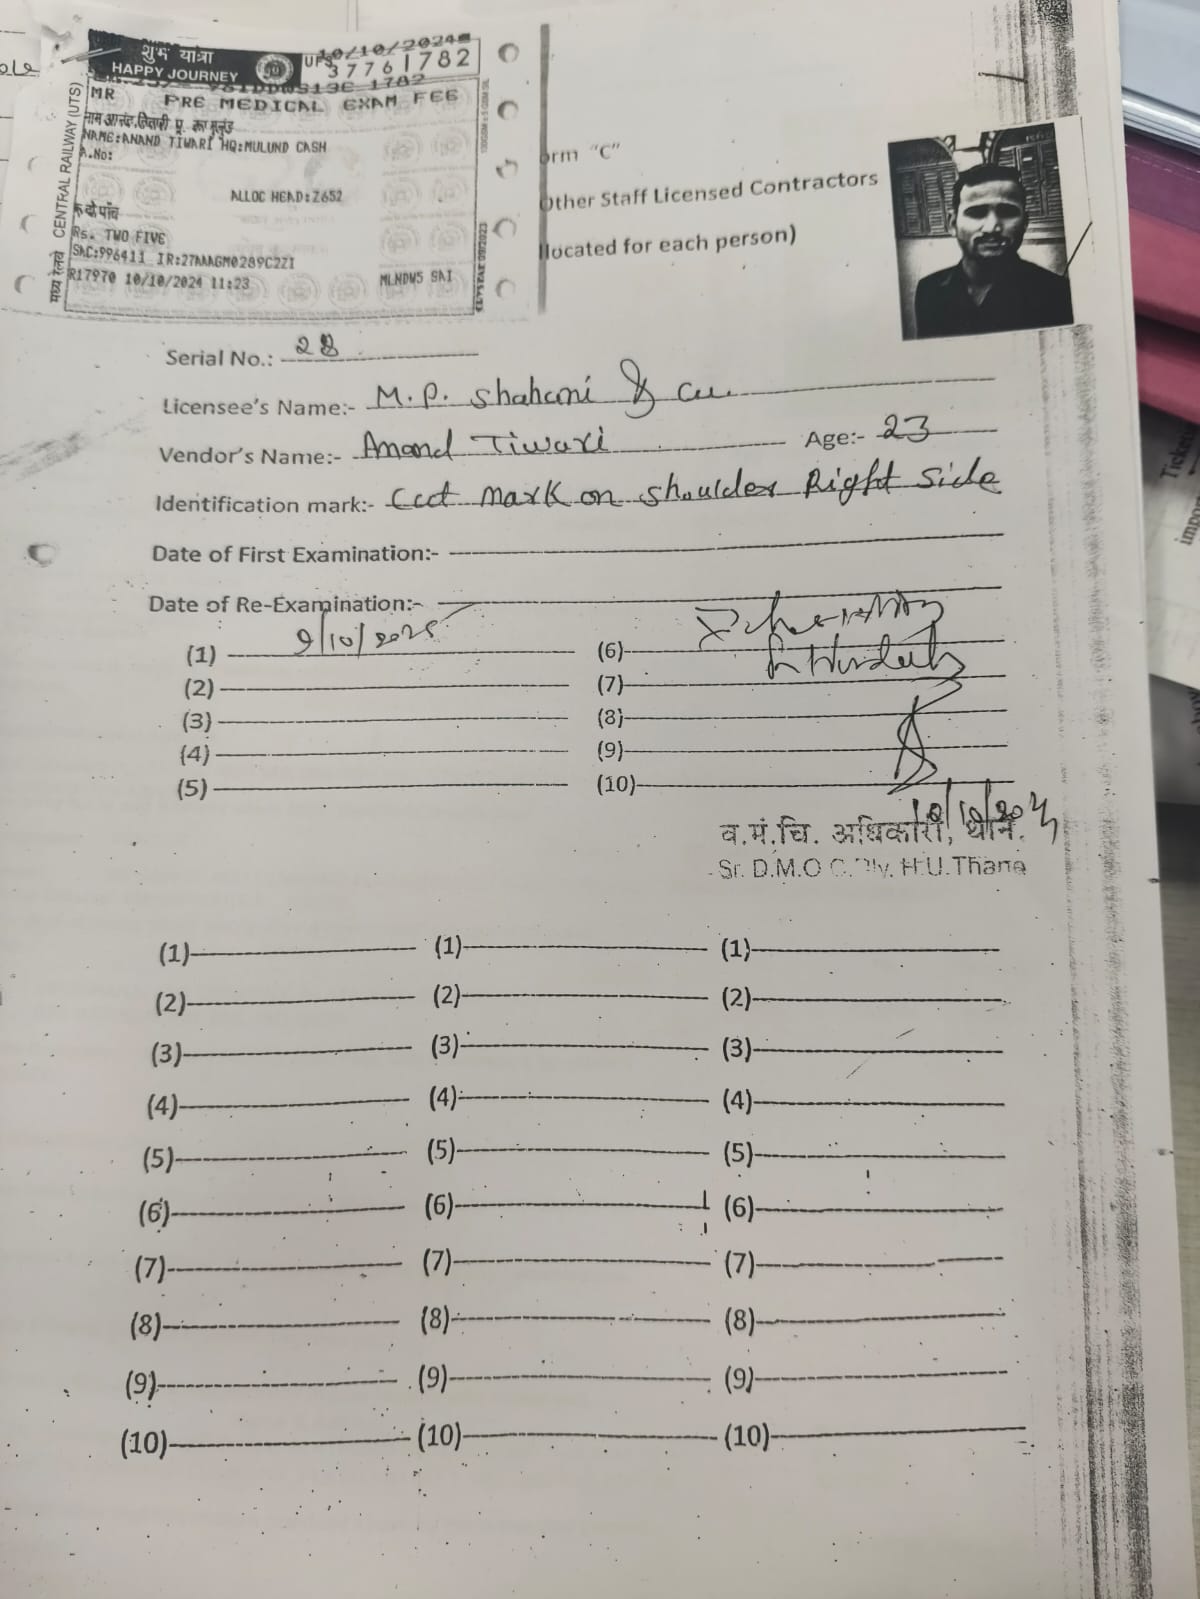 शुभ यात्रा
HAPPY JOURNEY
10/10/2024
37761782
MR PRE MEDICAL EXAM FEE
NAME:ANAND TIWARI HQ:MULUND CASH
A.No:
ALLOC HEAD:Z652
Rs. TWO FIVE
SAC:996411 IR:27AAAGM0289C2Z1
R17970 10/10/2024 11:23 MLNDWS SAI
मध्य रेलवे CENTRAL RAILWAY (UTS)
orm "C"
Other Staff Licensed Contractors
located for each person)
Serial No.: 28
Licensee's Name:- M.P. Shahani &
Vendor's Name:- Anand Tiwari Age:- 23
Identification mark:- Cut mark on shoulder Right Side
Date of First Examination:-
Date of Re-Examination:-
(1) 9/10/2025 (6)
(2) (7)
(3) (8)
(4) (9)
(5) (10)
व.मं.चि. अधिकारी, थाने.
Sr. D.M.O C.Rly. H.U.Thane
(1) (1) (1)
(2) (2) (2)
(3) (3) (3)
(4) (4) (4)
(5) (5) (5)
(6) (6) (6)
(7) (7) (7)
(8) (8) (8)
(9) (9) (9)
(10) (10) (10)